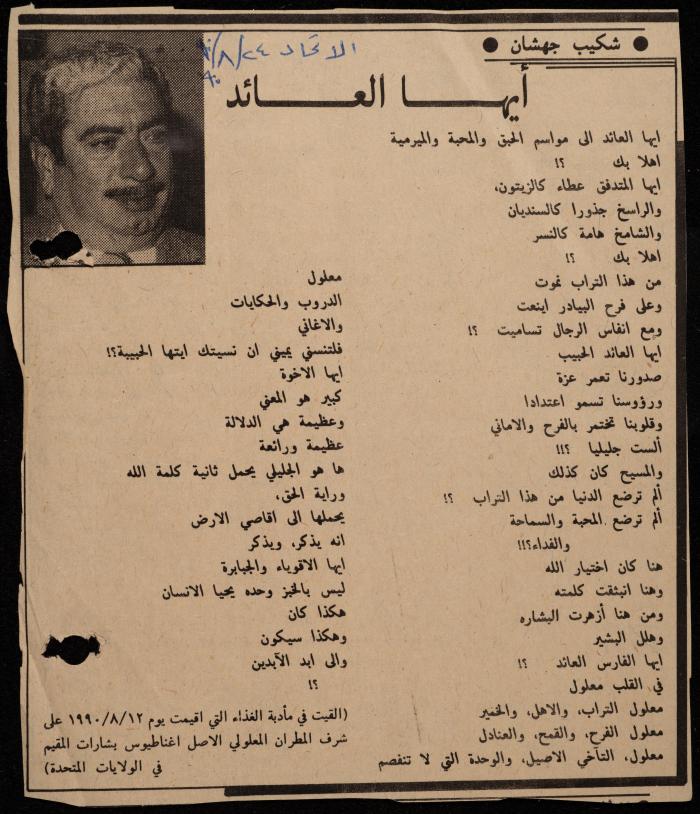 ● شكيب جهشان ●
الاتحاد ٢٤/٨/٩٠
أيها العائد
ايها العائد الى مواسم الحبق والمحبة والميرمية
اهلا بك ؟!
ايها المتدفق عطاء كالزيتون،
والراسخ جذورا كالسنديان
والشامخ هامة كالنسر
اهلا بك ؟!
من هذا التراب نموت
وعلى فرح البيادر اينعت
ومع انفاس الرجال تساميت ؟!
ايها العائد الحبيب
صدورنا تعمر عزة
ورؤوسنا تسمو اعتدادا
وقلوبنا تختمر بالفرح والاماني
ألست جليليا ؟!!
والمسيح كان كذلك
ألم ترضع الدنيا من هذا التراب ؟!
ألم ترضع المحبة والسماحة
والفداء؟!!
هنا كان اختيار الله
وهنا انبثقت كلمته
ومن هنا أزهرت البشاره
وهلل البشير
ايها الفارس العائد ؟!
في القلب معلول
معلول التراب، والاهل، والخمير
معلول الفرح، والقمح، والعنادل
معلول، التآخي الاصيل، والوحدة التي لا تنفصم
معلول
الدروب والحكايات
والاغاني
فلتنسني يميني ان نسيتك ايتها الحبيبة؟!
ايها الاخوة
كبير هو المعني
وعظيمة هي الدلالة
عظيمة ورائعة
ها هو الجليلي يحمل ثانية كلمة الله
وراية الحق،
يحملها الى اقاصي الارض
انه يذكر، ويذكر
ايها الاقوياء والجبابرة
ليس بالخبز وحده يحيا الانسان
هكذا كان
وهكذا سيكون
والى ابد الآبدين
؟!
(القيت في مأدبة الغذاء التي اقيمت يوم ١٩٩٠/٨/١٢ على
شرف المطران المعلولي الاصل اغناطيوس بشارات المقيم
في الولايات المتحدة)